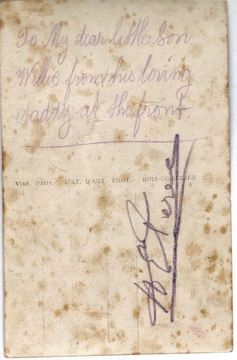 To My dear little Son
Willie from his loving
daddy at the front.
Visé, Paris. - L'AT. D'ART. PHOT. - BOIS-COLOMBES